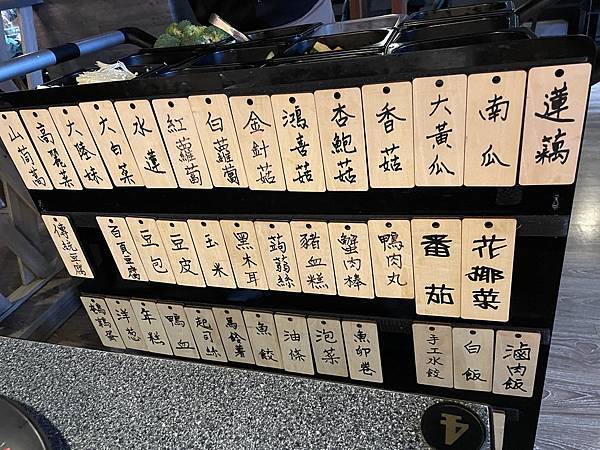 山茼蒿 高麗菜 大陸妹 大白菜 水蓮 紅蘿蔔 白蘿蔔 金針菇 鴻喜菇 杏鮑菇 香菇 大黃瓜 南瓜 蓮藕
傳統豆腐 百頁豆腐 豆包 豆皮 玉米 黑木耳 蒟蒻絲 豬血糕 蟹肉棒 鴨肉丸 番茄 花椰菜
鵪鶉蛋 洋葱 年糕 鴨血 起司絲 馬鈴薯 魚餃 油條 泡菜 魚卵卷 手工水餃 白飯 滷肉飯
4